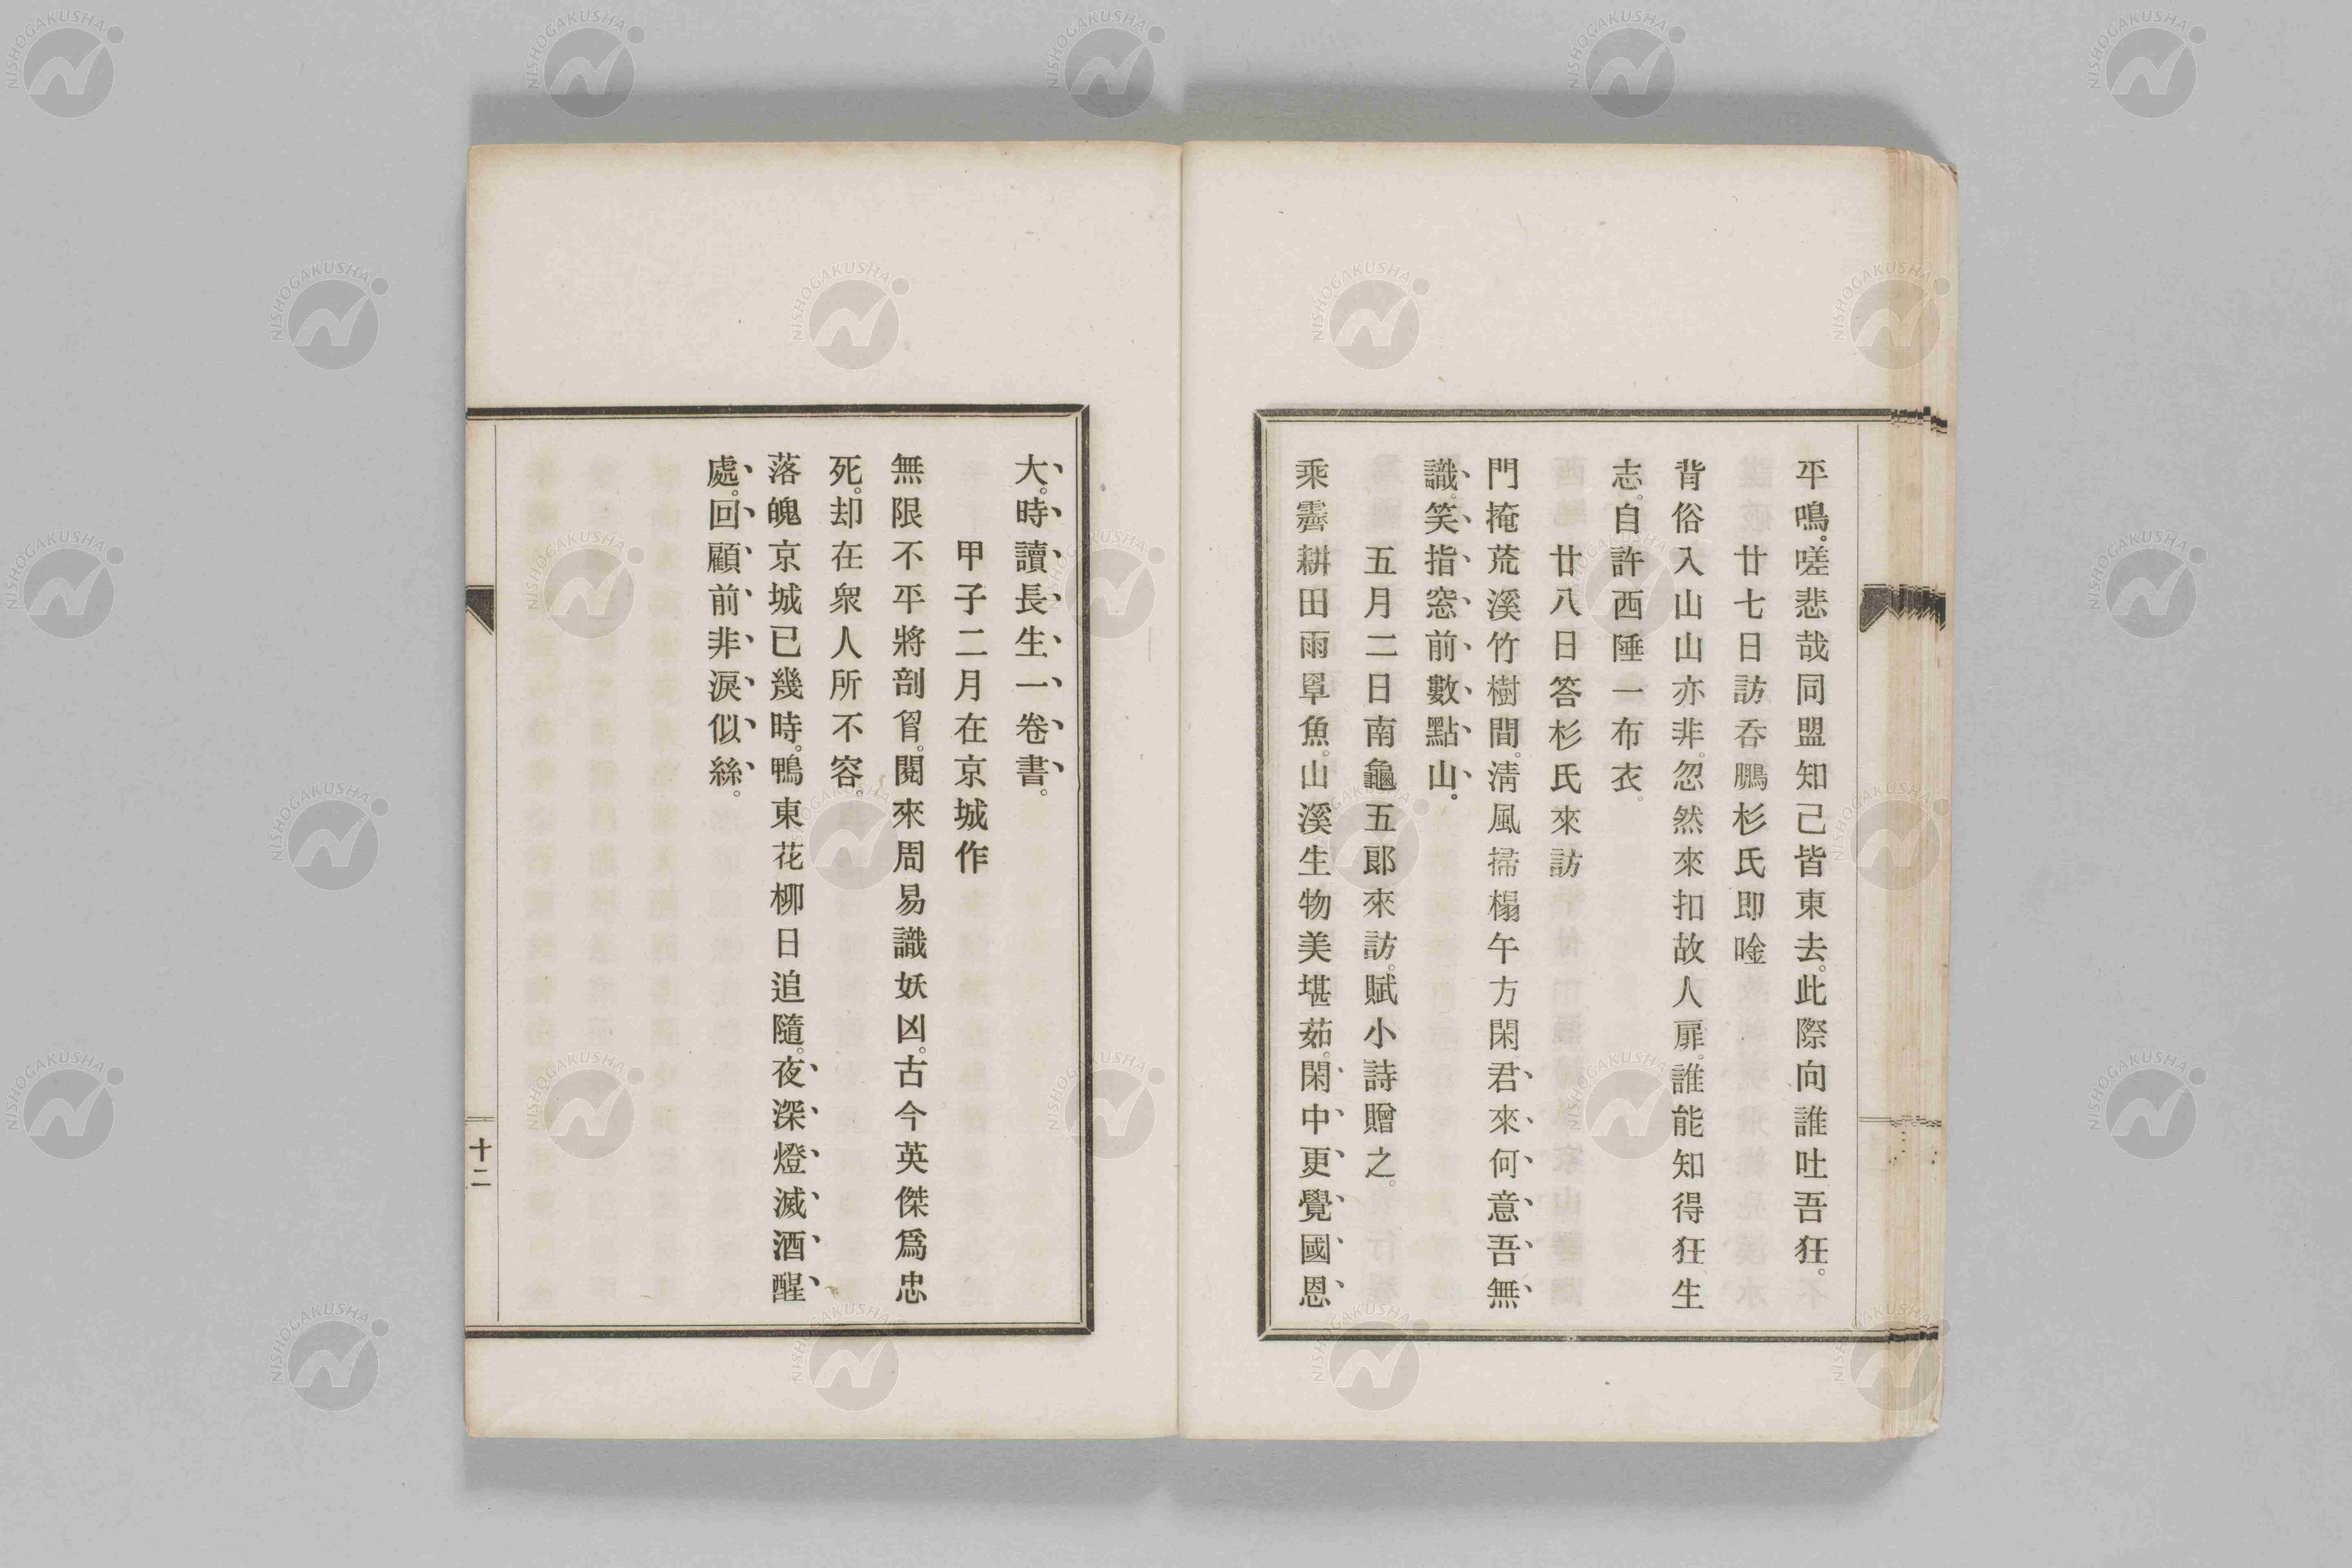 平鳴。嗟悲哉同盟知己皆東去。此際向誰吐吾狂。
廿七日訪呑鵬杉氏即唫
背俗入山山亦非。忽然來扣故人扉。誰能知得狂生
志。自許西陲一布衣。
廿八日答杉氏來訪
門掩荒溪竹樹間。淸風掃榻午方閑。君來何意吾無
識。笑指窓前數點山。
五月二日南龜五郞來訪。賦小詩贈之。
乘霽耕田雨罩魚。山溪生物美堪茹。閑中更覺國恩
大。時讀長生一卷書。
甲子二月在京城作
無限不平將剖胷。閱來周易識妖凶。古今英傑爲忠
死。却在衆人所不容。
落魄京城已幾時。鴨東花柳日追隨。夜深燈滅酒醒
處。回顧前非淚似絲。
十二
NISHOGAKUSHA